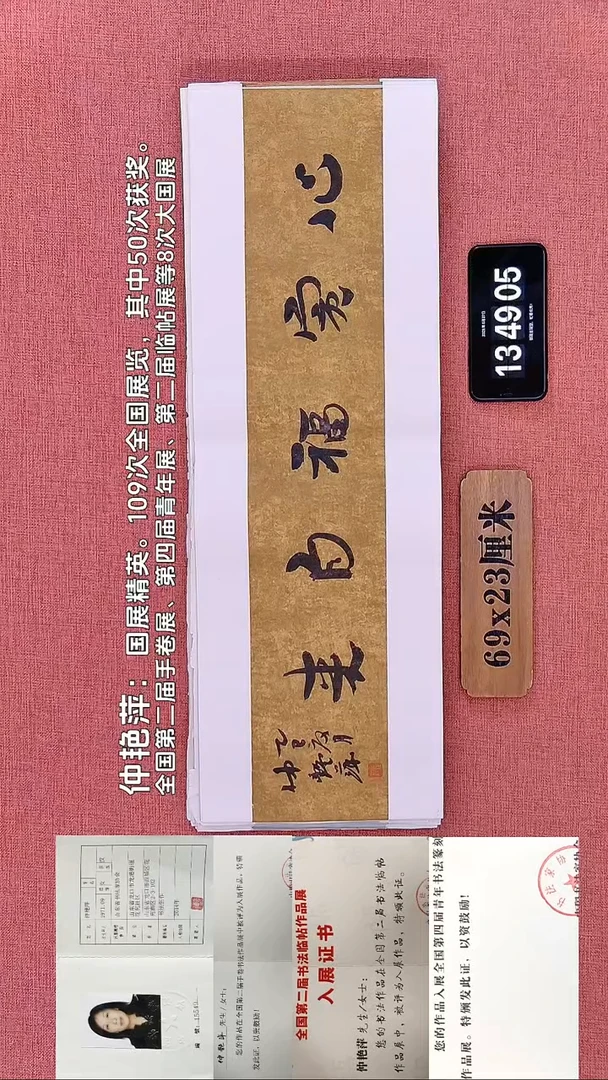 仲艳萍：国展精英。109次全国展览，其中50次获奖。
全国第二届手卷展、第四届青年展、第二届临帖展等8次大国展
心寬福自来
乙巳夏月
仲艳萍
13 49 05
69x23厘米
全国第二届书法临帖作品展
入展证书
仲艳萍 先生/女士：
您的书法作品在全国第二届书法临帖
作品展中，被评为入展作品，特颁此证。
您的作品入展全国第四届青年书法篆刻
作品展。特颁发此证，以资鼓励！